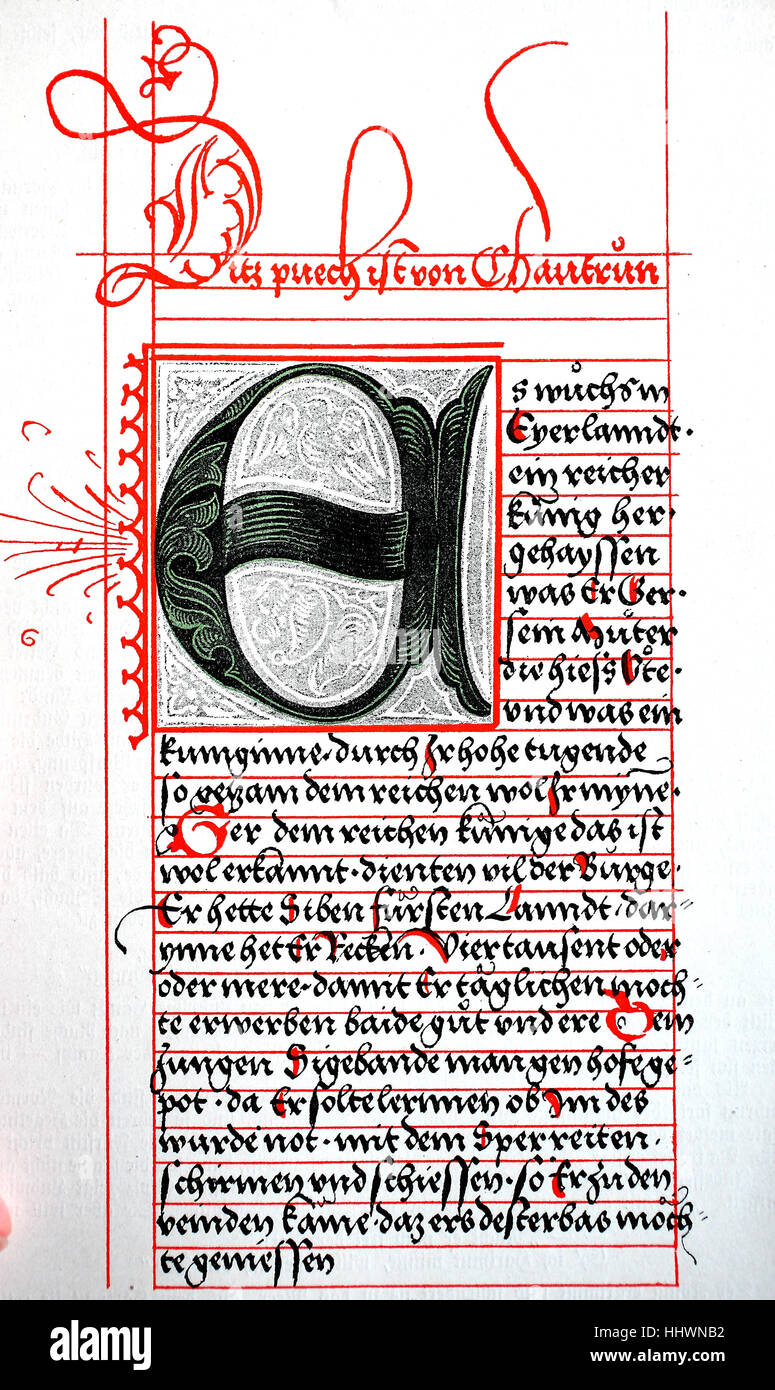 Ditz puech ist von Chautrŭn
Es wŭchs in
Eyerlanndt.
ein reicher
kŭnig her.
gehayssen
was Er Ger.
sein Mŭter
die hiess Ŭte.
vnd was ein
kuniginne. durch Ir hohe tugende
so gezam dem reichen wol Ir mynne.
Ger dem reichen kŭnige das ist
wol erkannt. dienten vil der Bŭrge.
Er hette Siben fŭrsten Lanndt. dar-
ynne het Er Recken. Viertausent oder
oder mere. damit Er täglichen moch=
te erwerben baide gŭt vnd ere Dem
Jungen Sigebande man gen hofe ge=
pot. da Er solte lernnen ob Im des
wurde not. mit dem Sper reiten.
schirmen vnd schiessen. so Er zu den
veinden käme. daz ers desterbas möch=
te geniessen
alamy
a
alamy
Image ID: HHWNB2
www.alamy.com